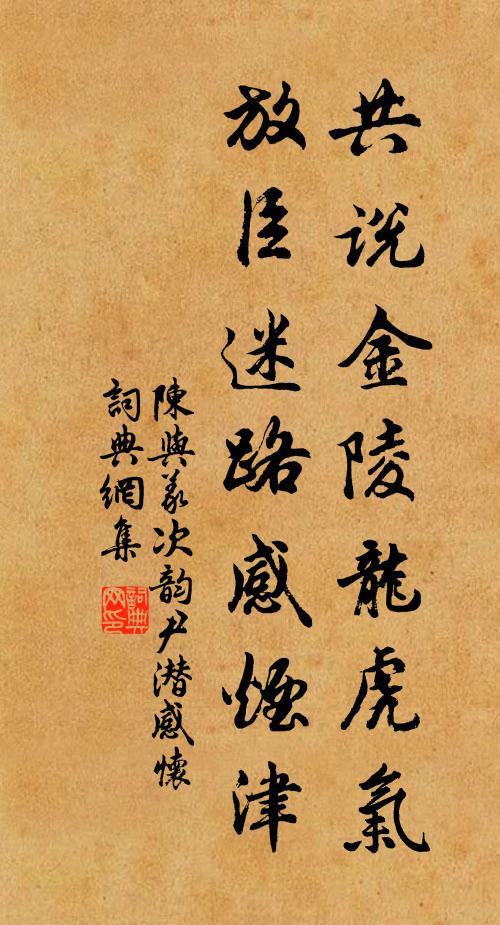 共説金陵龍虎氣
放臣迷路感煙津
陳與義次韵尹潛感懷
詞典網集
詞典网印